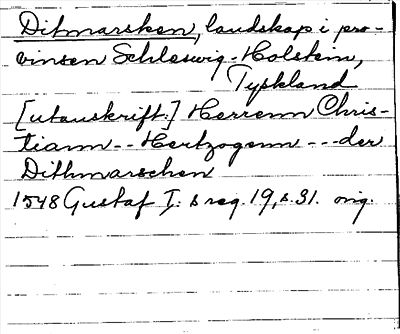 Ditmarsken, landskap i pro-
vinsen Schleswig-Holstein,
Tyskland
[utanskrift:] Herrenn Chris-
tiann -- Hertzogenn --- der
Dithmarschen
1548 Gustaf I: s reg. 19, s. 31. orig.